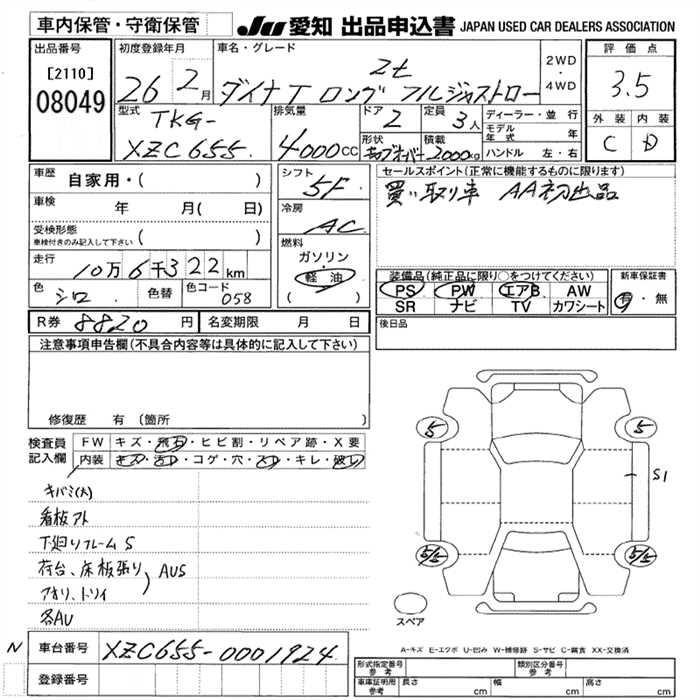 車内保管・守衛保管
JU 愛知 出品申込書 JAPAN USED CAR DEALERS ASSOCIATION
出品番号
[2110]
08049
初度登録年月
26年 2月
車名・グレード
2t
ダイナT ロング フルジャストロー
2WD
・
4WD
評価点
3.5
外装 内装
C D
型式
TKG-
XZC655
排気量
4000cc
ドア
2
定員
3人
形状
キャブオーバー
積載
2000kg
ディーラー・並行
モデル年式 年
ハンドル 左・右
車歴 自家用・( )
車検 年 月( 日)
受検形態
車検付きのみ記入して下さい ( )
走行 10万6千322km
色 シロ 色替 色コード 058
シフト
5F
冷房
AC
燃料
ガソリン
・
軽油
( )
セールスポイント(正常に機能するものに限ります)
買い取り車 AA初出品
装備品(純正品に限り○をつけてください)
PS PW エアB AW
SR ナビ TV カワシート
新車保証書
有・無
R券 8820円 名変期限 月 日
後日品
注意事項申告欄(不具合内容等は具体的に記入して下さい)
修復歴 有(箇所 )
検査員
記入欄
FW キズ・飛石・ヒビ割・リペア跡・X要
内装 キズ・汚レ・コゲ・穴・スレ・キレ・破レ
キバミ(大)
看板アト
下廻りフレームS
荷台、床板張り
アオリ、トリイ
AUS
各AU
5 5
S1
5/5 5/5
スペア
A-キズ E-エクボ U-凹み W-補修跡 S-サビ C-腐食 XX-交換済
N 車台番号 XZC655-0001924
登録番号
形式指定番号
参考
類別区分番号
参考
車庫証明用
参考
長さ cm 幅 cm 高さ cm